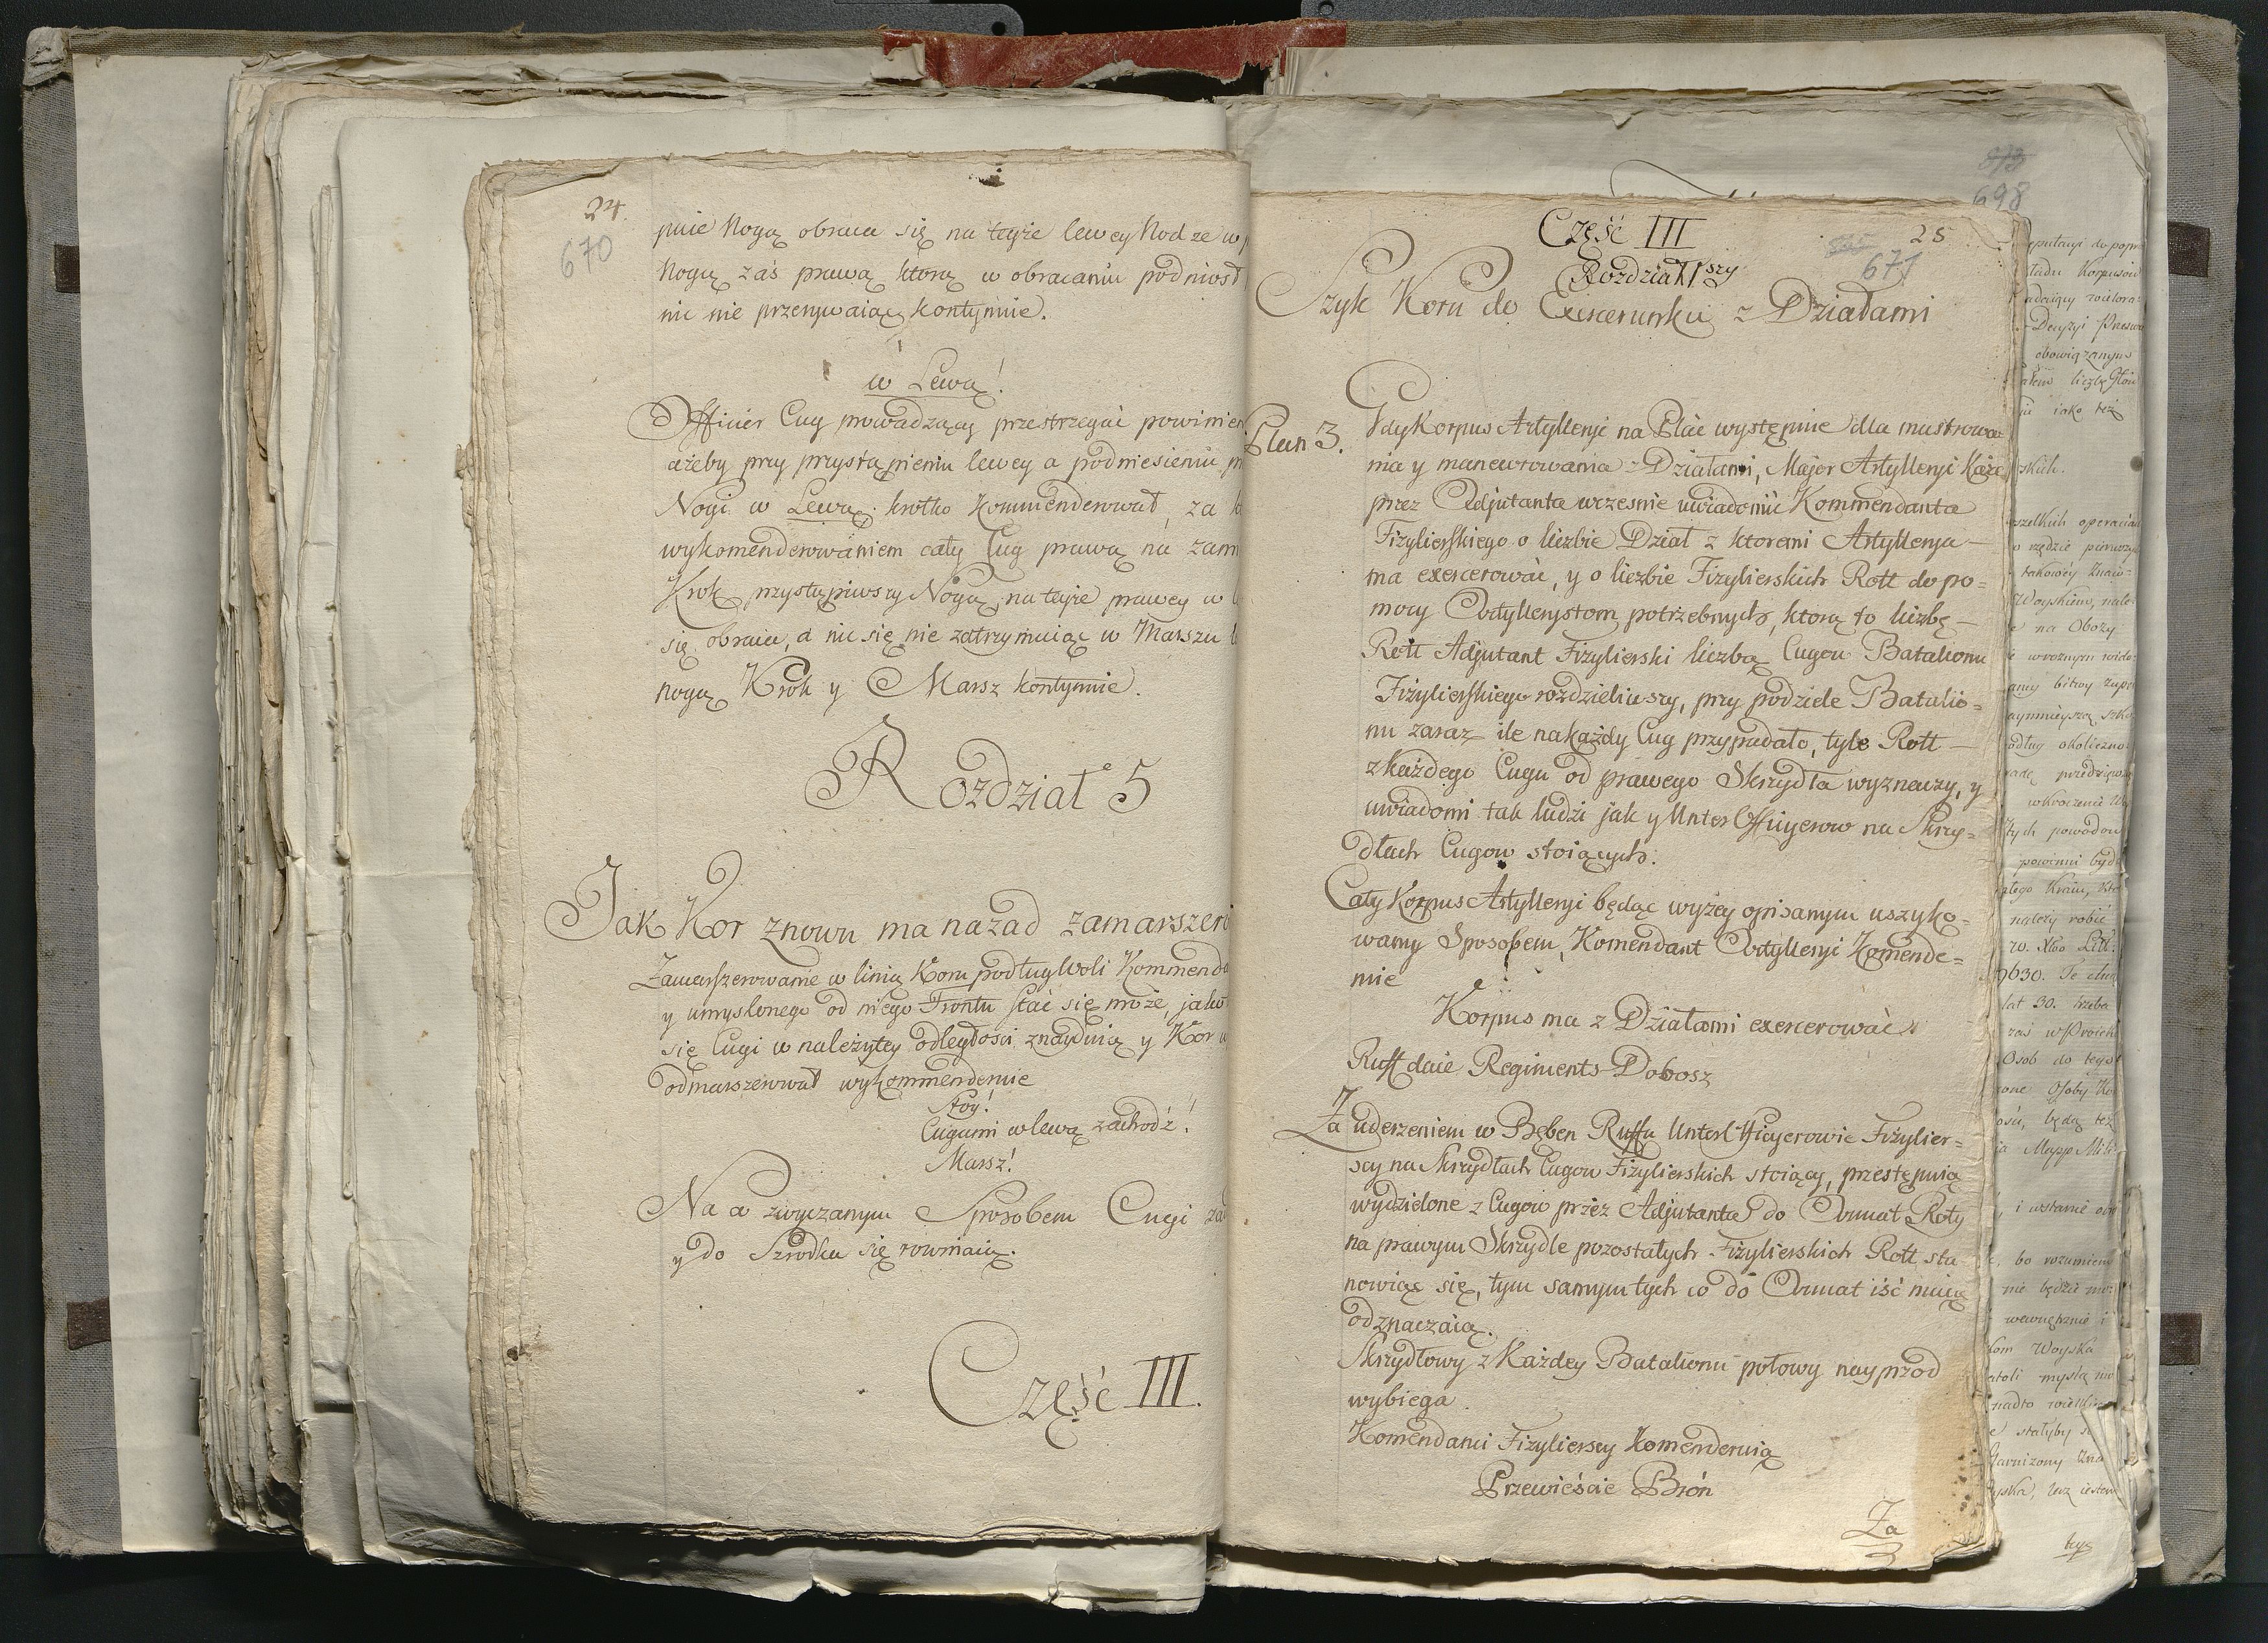 24.
670
pnie Nogą obraca się na teyże lewey Nodze w
Nogą zaś prawą którą w obracaniu podniosł
nic nie przerywaiąc kontynuie.
w Lewą!
Officier Cug prowadzący przestrzegać powinien
ażeby przy przystąpieniu lewey a podniesieniu
Nogi w Lewą krotko Kommenderował, za
wykomenderowaniem cały Cug prawą na
Krok przystąpiwszy Nogą, na teyże prawey w
się obraca, a nic się nie zatrzymuiąc w Marszu
nogą Krok y Marsz kontynuie.
Rozdział 5
Jak Kor znowu ma nazad zamarszero
Zamarszerowanie w linią Koru podług Woli Kommend
y umyslonego od niego Frontu stać się może, jako
się Cugi w należytey odległosci znayduią y Kor
odmarszerował wykommenderuie
Stoy!
Cugami w lewą zachodź!
Marsz!
Na co zwyczaynym Sposobem Cugi
y do Szrodka się rownaią.
Część III.
Część III
25
671
Rozdział 1szy
Szyk Koru do Exercerunku z Działami
Plan 3.
Gdy Korpus Artylleryi na Plac występuie dla mustrowa
nia y manewrowania z Działami, Major Artylleryi Każe
przez Adjutanta wczesnie uwiadomić Kommendanta
Fizylierskiego o liczbie Dział z ktoremi Artyllerya
ma exercerować, y o liczbie Fizylierskich Rott do po=
mocy Artyllerystom potrzebnych, którą to liczbę
Rott Adjutant Fizylierski liczbą Cugow Batalionu
Fizylierskiego rozdzieliwszy, przy podziele Batalio=
nu zaraz ile na każdy Cug przypadało, tyle Rott
z każdego Cugu od prawego Skrzydła wyznaczy, y
uwiadomi tak ludzi jak y Unter Officyerow na Skrzy=
dłach Cugow stoiących.
Cały Korpus Artylleryi będąc wyżey opisanym uszyko=
wany Sposobem, Komendant Artylleryi Komende=
ruie
Korpus ma z Działami exercerować
Ruff daie Regiments Dobosz
Za uderzeniem w Bęben Ruffu Unter Officyerowie Fizylier=
scy na Skrzydłach Cugow Fizylierskich stoiący, przestępuią
wydzielone z Cugow przez Adjutanta do Armat Roty
na prawym Skrzydle pozostałych Fizylierskich Rott sta
nowiąc się, tym samym tych co do Armat iść maią
odznaczaią.
Skrzydłowy z Każdey Batalionu połowy nayprzod
wybiega.
Komendanci Fizylierscy Komenderuią
Przewieście Broń
Za
698